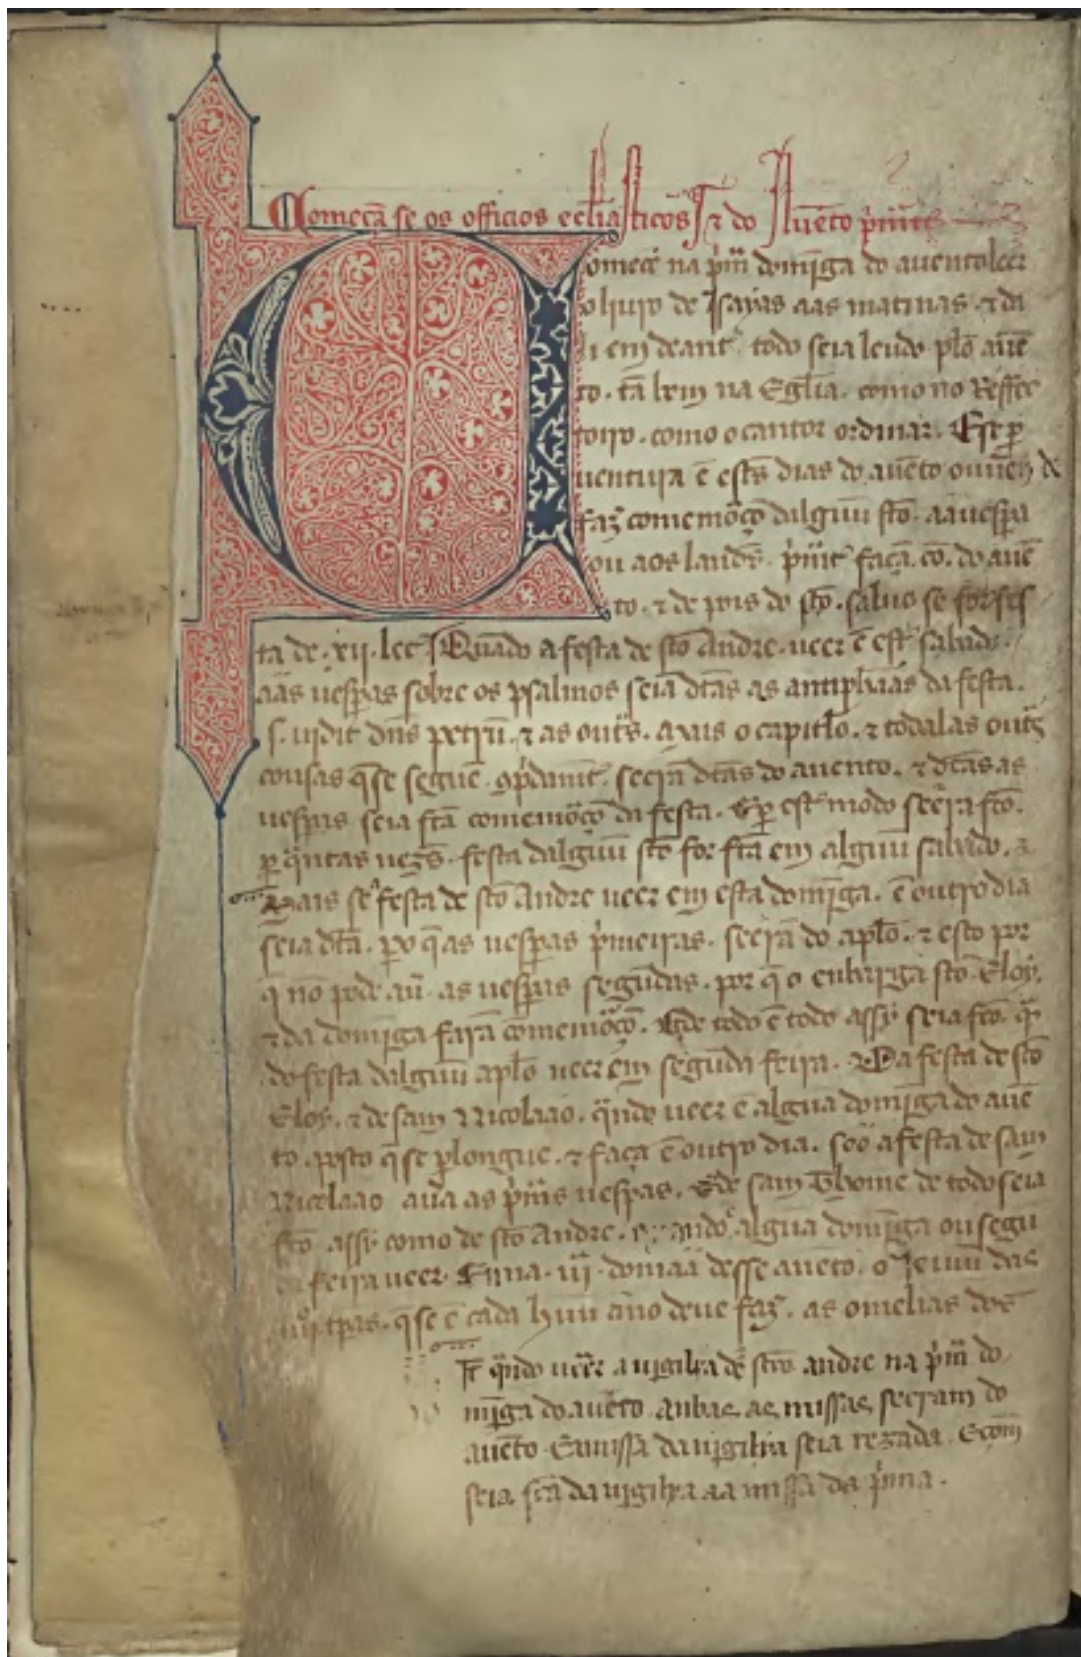 Começã se os officios ecliã sticos ⁊ do Auẽto
omece na pͥm̃ domĩga do auento leer
o liuro de Isayas aas matinas. ⁊ da
li em deant̃ todo seia leudo plo auẽ
to. tã bem na Eglia. como no Reffei
toiro. como o cantor ordinar. E se ꝑ
uentura ẽ estes dias do auẽto ouuer̃ de
faz comemoço dalgũu sto. aa uespa
ou aos laudes. faça cõ. do auẽ
to. ⁊ de pois do sto. saluo se for fes
ta de .xii. lec Quãdo a festa de sto Andre. ueer ẽ est̃ sabado.
aas uespas sobre os psalmos seiã dtãs as antiphãas da festa.
s. uidit dñs petrũ. ⁊ as out̃s. o capitlo. ⁊ todalas out̃s
cousas q̃ se seguẽ. serã dtãs do auento. ⁊ dtãs as
uespas seia ftã comemoço da festa. E ꝑ est̃ modo seera fto.
ꝑ q̃ntas uezes. festa dalgũu sto for ftã em algũu sabado.
Mais se festa de sto Andre ueer em esta domĩga. ẽ outro dia
seia dtã. ꝑo q̃ as uespas pͥmeiras. seerã do aplo. ⁊ esto por
q̃ nõ pode auer as uespas segũdas. por q̃ o enbarga sto Eloy.
⁊ da domĩga farã comemoço. E de todo ẽ todo assy seia fto. q̃n
do festa dalgũu aplo ueer em segũda feira. ⁊ Da festa de sto
Eloy. ⁊ de sam Nicolaao. q̃ndo ueer ẽ algũa domĩga do auẽ
to. posto q̃ se ꝑlongue. ⁊ faça ẽ outro dia. soo a festa de sam
Nicolaao aua as pͥm̃s uespas. E de sam Thome de todo seia
fto assy como de sto Andre. algũa domĩga ou segũ
da feira ueer. E na .iii. domãa desse auẽto. o Ieiuũ das
iiiiᵒʳ tp̃as. q̃ se ẽ cada hũu ano deue faz. as omelias
It q̃ndo ueer a uigilia de sto andre na pͥm̃ do
mĩga do auẽto. anbas as missas seeram do
auẽto. E a missa da uigilia seia rezada. E com̃
seia ftã da uigilia aa missa da pͥma.